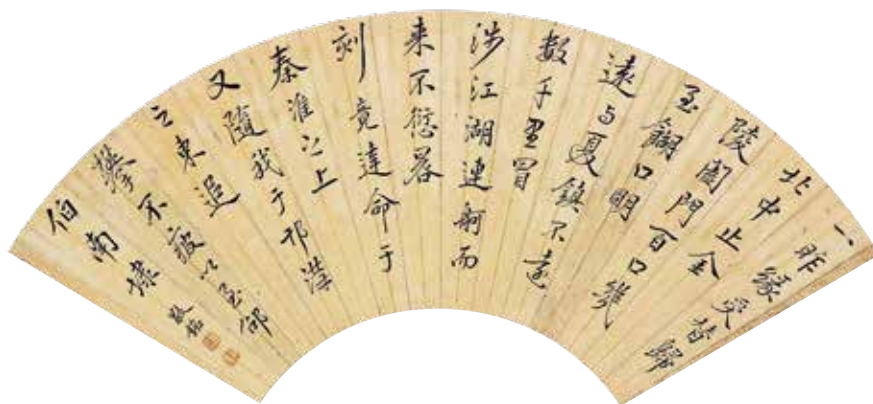 一昨緣受替歸
北中止金
陵闔門百口幾
至餬口明
遠与夏鎮不遠
数千里冒
涉江湖連舸而
来不愆晷
刻竟達命于
秦淮之上
又隨我于邗溝
之東追
攀不疲以至邵
伯南埭